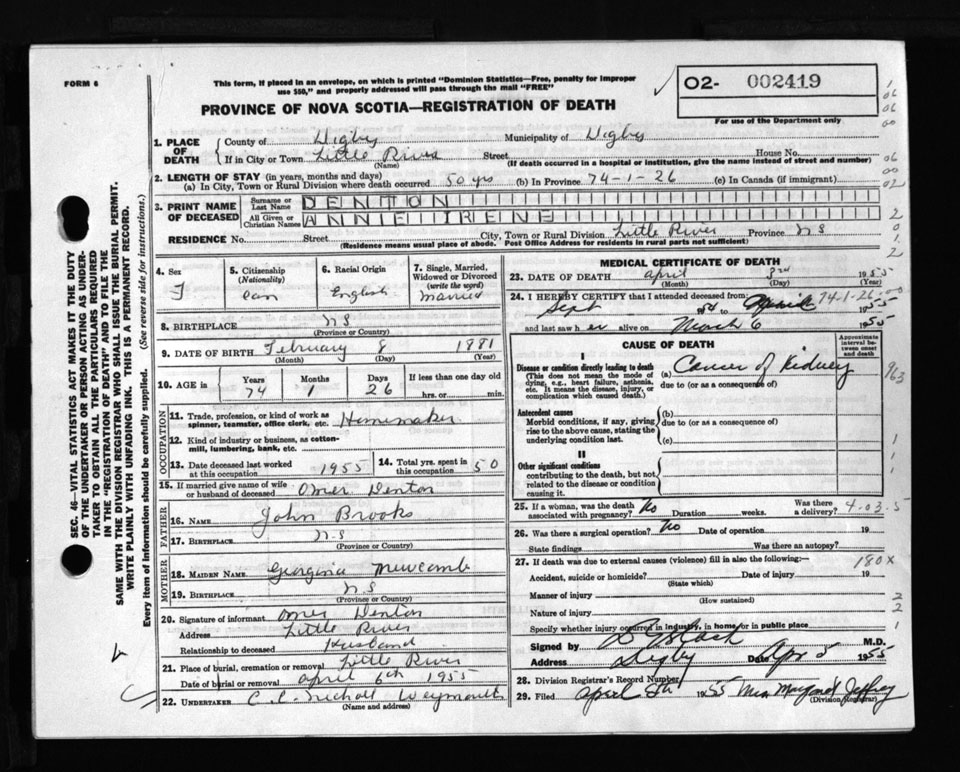 FORM 6
This form, if placed in an envelope, on which is printed "Dominion Statistics—Free, penalty for improper
use $50," and properly addressed will pass through the mail "FREE"
O2- 002419
PROVINCE OF NOVA SCOTIA—REGISTRATION OF DEATH
For use of the Department only
1. PLACE OF DEATH
County of Digby Municipality of Digby
If in City or Town Little River Street House No.
(Name) (If death occurred in a hospital or institution, give the name instead of street and number)
2. LENGTH OF STAY (in years, months and days)
(a) In City, Town or Rural Division where death occurred 50 yrs (b) In Province 74-1-26 (c) In Canada (if immigrant)
3. PRINT NAME OF DECEASED
Surname or Last Name DENTON
All Given or Christian Names ANNIE IRENE
RESIDENCE No. Street City, Town or Rural Division Little River Province NS
(Residence means usual place of abode. Post Office Address for residents in rural parts not sufficient)
4. Sex
F
5. Citizenship (Nationality)
Can
6. Racial Origin
English
7. Single, Married, Widowed or Divorced (write the word)
Married
8. BIRTHPLACE NS
(Province or Country)
9. DATE OF BIRTH February 8 1881
(Month) (Day) (Year)
10. AGE in Years Months Days If less than one day old
74 1 26 hrs. or min.
OCCUPATION
11. Trade, profession, or kind of work as spinner, teamster, office clerk, etc. Homemaker
12. Kind of industry or business, as cotton-mill, lumbering, bank, etc.
13. Date deceased last worked at this occupation 1955
14. Total yrs. spent in this occupation 50
15. If married give name of wife or husband of deceased Omer Denton
FATHER
16. NAME John Brooks
17. BIRTHPLACE N.S
(Province or Country)
MOTHER
18. MAIDEN NAME Georgina Newcomb
19. BIRTHPLACE NS
(Province or Country)
20. Signature of informant Omer Denton
Address Little River
Relationship to deceased Husband
21. Place of burial, cremation or removal Little River
Date of burial or removal April 6th 1955
22. UNDERTAKER Weymouth
(Name and address)
MEDICAL CERTIFICATE OF DEATH
23. DATE OF DEATH April 3rd 1955
(Month) (Day) (Year)
24. I HEREBY CERTIFY that I attended deceased from:
74-1-26
Sept 1954 to March 1955
and last saw her alive on March 6 1955
CAUSE OF DEATH
Approximate interval between onset and death
I
Disease or condition directly leading to death
(This does not mean the mode of dying, e.g., heart failure, asthenia, etc. It means the disease, injury, or complication which caused death.)
(a) Cancer of Kidney
due to (or as a consequence of)
Antecedent causes
Morbid conditions, if any, giving rise to the above cause, stating the underlying condition last.
(b)
due to (or as a consequence of)
(c)
II
Other significant conditions
contributing to the death, but not related to the disease or condition causing it.
25. If a woman, was the death associated with pregnancy? No Duration weeks. Was there a delivery?
4-03-5
26. Was there a surgical operation? No Date of operation 19
State findings Was there an autopsy?
27. If death was due to external causes (violence) fill in also the following:—
180x
Accident, suicide or homicide? Date of injury 19
(State which)
Manner of injury
(How sustained)
Nature of injury
Specify whether injury occurred in industry, in home, or in public place
Signed by M.D.
Address Digby Date Apr 5 1955
28. Division Registrar's Record Number
29. Filed April 8th 1955 Margaret Jeffrey
(Division Registrar)
SEC. 46—VITAL STATISTICS ACT MAKES IT THE DUTY
OF THE UNDERTAKER OR PERSON ACTING AS UNDER-
TAKER TO OBTAIN ALL THE PARTICULARS REQUIRED
IN THE "REGISTRATION OF DEATH" AND TO FILE THE
SAME WITH THE DIVISION REGISTRAR WHO SHALL ISSUE THE BURIAL PERMIT.
WRITE PLAINLY WITH UNFADING INK. THIS IS A PERMANENT RECORD.
Every item of information should be carefully supplied. (See reverse side for instructions.)